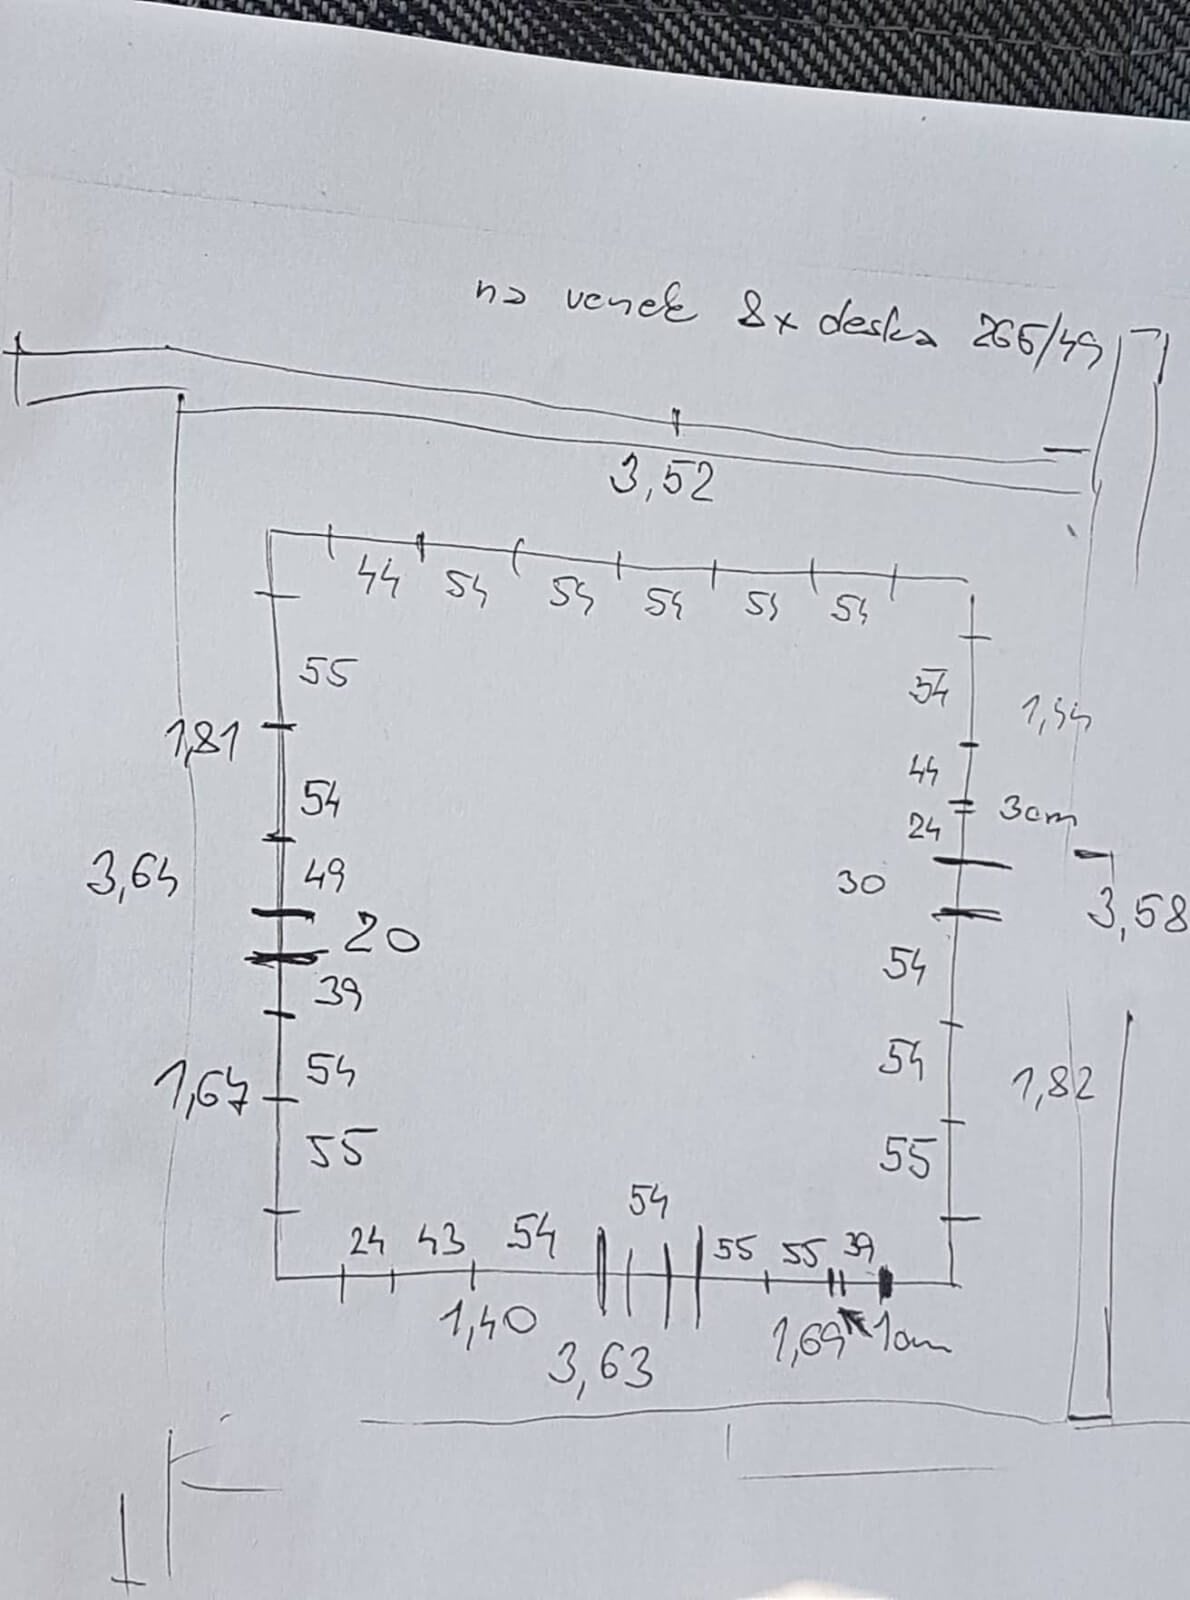 na venek 8x deska 265/49
3,52
44 54 54 54 54 54
55
54
1,44
1,81
44
54
3cm
24
3,64
49
30
3,58
20
54
39
54
1,82
1,67
54
55
55
54
24 43 54 55 55 39
1,40
1,69
1cm
3,63